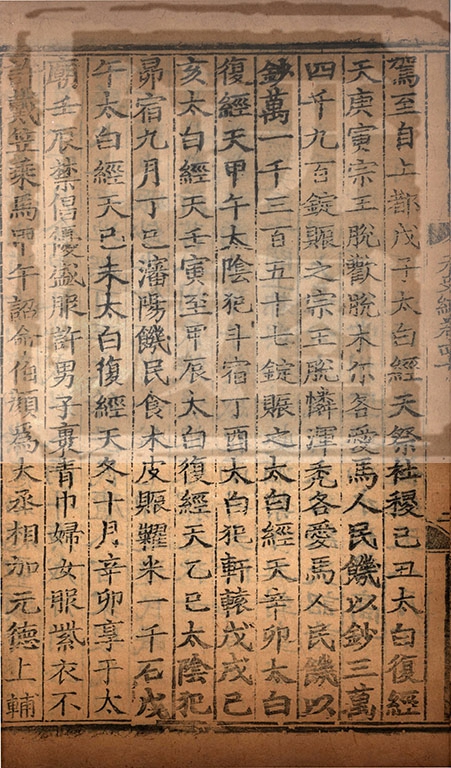 元史紀卷四十
二
駕至自上都戊子太白經天祭社稷己丑太白復經
天庚寅宗王脫歡脫木尔各愛馬人民饑以鈔三萬
四千九百錠賑之宗王脫憐渾禿各愛馬人民饑以
鈔萬一千三百五十七錠賑之太白經天辛卯太白
復經天甲午太陰犯斗宿丁酉太白犯軒轅戊戌己
亥太白經天壬寅至甲辰太白復經天乙巳太陰犯
昴宿九月丁巳瀋陽饑民食木皮賑糶米一千石戊
午太白經天己未太白復經天冬十月辛卯享于太
廟壬辰禁倡優盛服許男子裹青巾婦女服紫衣不
許戴笠乘馬甲午詔命伯顏為大丞相加元德上輔